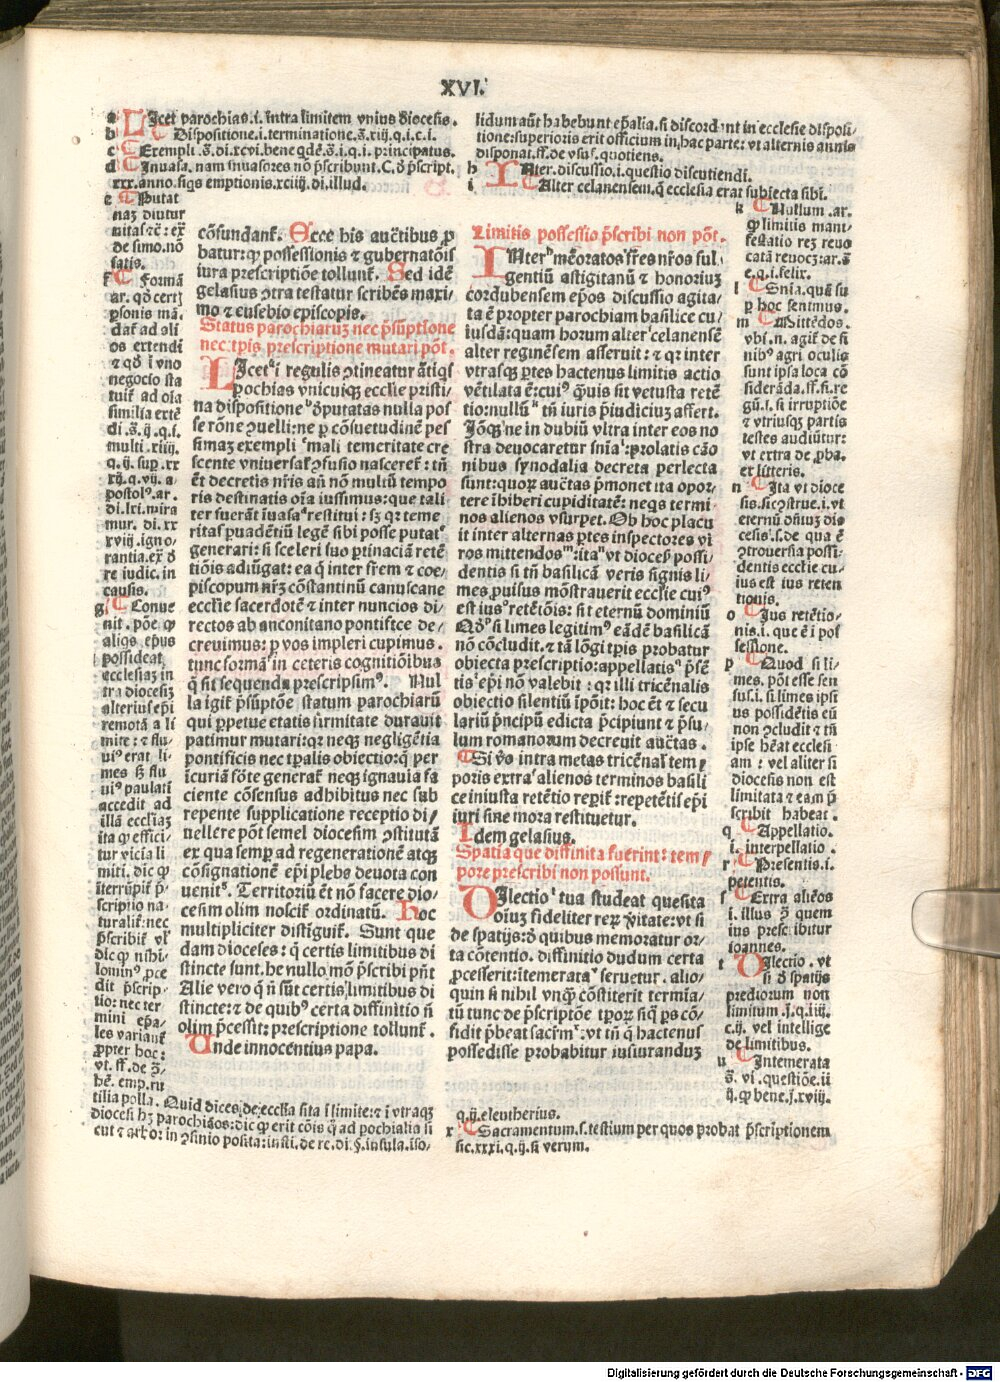 XVI.
a Licet parochias.i.intra limitem vnius diocesis.
b Dispositione.i.terminatione.s̄.xiij.q.i.c.i.
c Exempli.s̄.di.xcvi.bene qdē.s̄.i.q.i.principatus.
d Inuasa.nam inuasores nō p̄scribunt.C.d̄ p̄script.
xxx.anno.siqs emptionis.xciiij.di.illud.
e Putat
naz diutur
nitas ⁊c̄:ex̄
de simo.nō
satis.
f Formā
ar. qd̓ certꝫ
ꝑsonis mā-
dat̄ ad ali
os extendi
⁊ qd̓ ī vno
negocio sta
tuit̄ ad oīa
similia extē
di.s̄.ij.q.i.
multi.xiiij.
q.ij.sup̄.xx
xij.q.vij.a
postolꝰ.ar.
di.lxi.mira
mur. di.xx
xviij.igno-
rantia.ex̄ d̄
re iudic.in
causis.
g Conue
nit.pōe qp̄
aliqs ep̄us
possideat
ecclesiaz in
tra diocesiz
alterius ep̄i
remotā a li
mite:⁊ flu-
uiꝰ erat li-
mes sꝫ flu
uiꝰ paulatī
accedit ad
illā eccl̄iaz
ita qp̄ effici-
tur vicīa li
miti. dic qp̄
īterrūpit̄ p̄-
scriptio na-
turalit̄:nec
p̄scribit̄ vl̄
dic qp̄ nihi-
lominꝰ ꝓce
dit p̄scrip-
tio:nec ter
mini ep̄a-
les variant̄
ꝓpter hoc:
vt.ff.de q̄-
bē. emp.ru
tilia polla. Quid dices de eccl̄ia sita ī limite:⁊ ī vtraqꝫ
diocesi hꝫ parochiāos:dic qp̄ erit cōis qp̄ ad pochialia si
cut ⁊ arbo:in ꝯsinio posita:insti.de re.di.§.insula.iso-
cōfundant̄. Ecce his auctibus ꝓ
batur:qp̄ possessionis ⁊ gubernatōis
iura prescriptiōe tollunt̄. Sed idē
gelasius ꝯtra testatur scribēs maxi-
mo ⁊ eusebio episcopis.
Status parochiaruꝫ nec p̄suptione
nec:tp̄is prescriptione mutari pōt.
Licetᵃ i regulis ꝯtineatur ātiqs
pochias vnicuiqꝫ eccl̄ie pristi-
na dispositioneᵇ d̓putatas nulla pos
se rōne ꝯuelli:ne ꝑ cōsuetudinē pes
simaꝫ exempliᶜ mali temeritate cre
scente vniuersal̄ ꝯfusio nasceret̄: tn̄
ēt decretis nr̄is añ nō multū tempo
ris destinatis oīa iussimus:que tali
ter fuerāt īuasaᵈ restitui: sꝫ qr teme
ritas ꝑuadētiū legē sibi posse putatᵉ
generari: si sceleri suo ꝑtinaciā retē
tiōis adiūgat: ea qp̄ inter fr̄em ⁊ coe-
piscopum nr̄ꝫ cōstantinū canuscane
eccl̄ie sacerdotē ⁊ inter nuncios di-
rectos ab anconitano pontifice de-
creuimus: ꝑ vos impleri cupimus.
tunc formāᶠ in ceteris cognitiōibus
q̄ sīt sequenda prescripsimꝰ. Nul
la igit̄ p̄sūptōe statum parochiarū
qui ꝑpetue etatis firmitate durauit
patimur mutari:qr neqꝫ negligētia
pontificis nec tp̄alis obiectio:qp̄ per
īcuriā sōte generat̄ neqꝫ ignauia fa
ciente cōsensus adhibitus nec sub
repente supplicatione receptio di-
uellere pōt semel diocesim ꝯstitutā
ex qua semꝑ ad regenerationē atqꝫ
cōsignationē ep̄i plebs deuota con
uenitᵍ. Territoriū ēt nō facere dio-
cesim olim noscit̄ ordinatū. Hoc
multipliciter distiguit̄. Sunt que
dam dioceses: q̄ certis limitibus di
stincte sunt. he nullo mō p̄scribi pn̄t
Alie vero q̄ ñ sūt certis limitibus di
stincte:⁊ de quibꝰ certa diffinitio ñ
olim p̄cessit: prescriptione tollunt̄.
Unde innocentius papa.
lidum aūt habebunt ep̄alia.si discordant in ecclesie disposi-
tione:superioris erit officium in hac parte: vt alternis annis
disponat.ff.de vsu s.quotiens.
h Inter.discussio.i.questio discutiendi.
i Alter celanensem.q̄ ecclesia erat subiecta sibi.
Limitis possessio p̄scribi non pōt.
Interʰ mēoratos fr̄es nr̄os ful
gentiū astigitanū ⁊ honoriuꝫ
cordubensem ep̄os discussio agita-
ta ē propter parochiam basilice cu-
iusdā:quam horum alterⁱ celanensē
alter reginēsem asseruit: ⁊ qr inter
vtrasqꝫ ꝑtes hactenus limitis actio
vētilata ē:cuiꝰ q̄uis sit vetusta retē
tio:nullūᵏ tn̄ iuris p̄iudiciuꝫ affert.
Jōqꝫ ne in dubiū vltra inter eos no
stra deuocaretur sn̄iaˡ:ꝓlatis cāo
nibus synodalia decreta perlecta
sunt:quoꝝ auctas p̄monet ita opor-
tere ībiberi cupiditatē: neqs termi-
nos alienos vsurpet. Ob hoc placu
it inter alternas ꝑtes inspectores vi
ros mittendosᵐ:itaⁿ vt diocesꝭ possi-
dentis si tn̄ basilicā veris signis li-
mes ꝑuisus mōstrauerit eccl̄ie cuiꝰ
est iusᵒ retētōis: sit eternū dominiū
Qd̓ᵖ si limes legitimꝰ eādē basilicā
nō cōcludit.⁊ tā lōgi tp̄is probatur
obiecta prescriptio:appellatisᑫ p̄sē
tisʳ ep̄i nō valebit : qr illi tricēnalis
obiectio silentiū ipōit: hoc ēt ⁊ secu
lariū p̄ncipū edicta p̄cipiunt ⁊ p̄su-
lum romanorum decreuit auctas.
Si v̄o intra metas tricēnal̄ tem p̄
poris extraˢ alienos terminos basili
ce iniusta retētio reꝑit̄:repetētis ep̄i
iuri sine mora restituetur.
Idem gelasius.
Spatia que diffinita fuerint: tem p̄
pore prescribi non possunt.
Dilectioᵗ tua studeat quesita
oīuꝫ fideliter reꝝ v̄itate:vt si
de spatijs:d̄ quibus memoratur or-
ta cōtentio. diffinitio dudum certa
p̄cesserit:ītemerataᵘ seruetur. alio-
quin si nihil vnqp̄ cōstiterit termīa-
tū tunc de p̄scriptōe tꝑoꝝ siqp̄ ꝑs cō-
fidit p̄beat sacr̄mˣ:vt tn̄ q̄ hactenus
possedisse probabitur iusiuranduꝫ
k Nullum .ar.
qp̄ limitis mani
festatio reꝫ reuo
catā reuocꝫ:ar.s̄
e.q.i.felix.
l Snīa.quā su
ꝑ hoc sentimus.
m Mittēdos.
vbi.n.agit̄ de fi
nibꝰ agri oculis
sunt ipsa loca cō
siderāda.ff.fi.re
gū.l.si irruptiōe
⁊ vtriusqꝫ partis
testes audiūtur:
vt extra de ꝓba.
ex litteris.
n Ita vt dioce
sis.sic ꝯstrue.i.vt
eternū dn̄iuꝫ dio
cesis.s.de qua ē
ꝯtrouersia possi-
dentis eccl̄ie cu-
ius est ius reten
tionis.
o Jus retētio-
nis.i. que ē i pos
sessione.
p Quod si li-
mes. pōt esse sen
sus.i.si limes ipsi
us possidētis eū
non ꝯcludit ⁊ tn̄
ipse hēat ecclesi
am : vel aliter si
diocesis non est
limitata ⁊ eam p̄
scribit habeat.
q Appellatio.
i. interpellatio.
r Presentis.i.
petentis.
s Extra aliēos
i. illus q̄ quem
ius prescribitur
ioannes.
t Dilectio. vt
si d̄ spatijs
prediorum non
limitum.j.q.iiij.
c.ij. vel intellige
de limitibus.
u Intemerata
s̄. vi.questiōe.ij
ij.qp̄ bene.j.xviij.
q.ij.eleutherius.
x Sacramentum.s.testium per quos probat p̄scriptionem
sic.xxxi.q.ij.si verum.
Digitalisierung gefördert durch die Deutsche Forschungsgemeinschaft - DFG